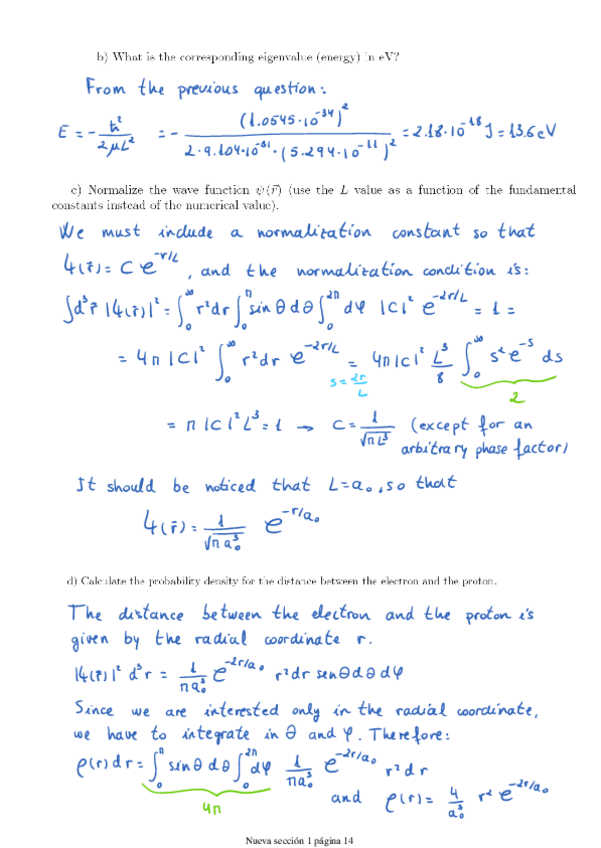 b) What is the corresponding eigenvalue (energy) in eV?
From the previous question:
E = - ħ²/2μL² = - (1.0545·10⁻³⁴)²/2·9.104·10⁻³¹·(5.294·10⁻¹¹)² = 2.18·10⁻¹⁸ J = 13.6 eV
c) Normalize the wave function ψ(r⃗) (use the L value as a function of the fundamental
constants instead of the numerical value).
We must include a normalization constant so that
ψ(r̄) = C e^(-r/L), and the normalization condition is:
∫d³r̄ |ψ(r̄)|² = ∫₀^∞ r²dr ∫₀^π sin θ dθ ∫₀^2π dφ |C|² e^(-2r/L) = 1 =
= 4π |C|² ∫₀^∞ r²dr e^(-2r/L) = 4π |C|² L³/8 ∫₀^∞ s² e^(-s) ds
s = 2r/L
2
= π |C|² L³ = 1 → C = 1/√(πL³) (except for an
arbitrary phase factor)
It should be noticed that L = a₀, so that
ψ(r̄) = 1/√(πa₀³) e^(-r/a₀)
d) Calculate the probability density for the distance between the electron and the proton.
The distance between the electron and the proton is
given by the radial coordinate r.
|ψ(r̄)|² d³r = 1/πa₀³ e^(-2r/a₀) r²dr senθdθdφ
Since we are interested only in the radial coordinate,
we have to integrate in θ and φ. Therefore:
ρ(r)dr = ∫₀^π sinθ dθ ∫₀^2π dφ 1/πa₀³ e^(-2r/a₀) r²dr
4π
and ρ(r) = 4/a₀³ r² e^(-2r/a₀)
Nueva sección 1 página 14